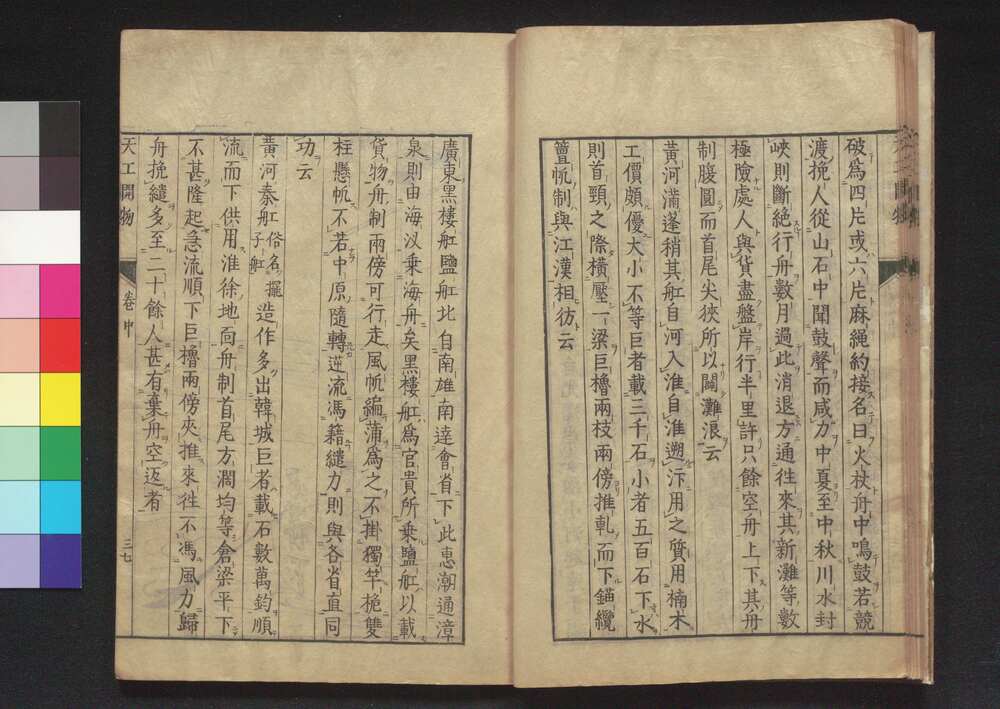 破爲四片或六片麻繩約接名曰火杖舟中鳴鼓若競
渡挽人從山石中聞鼓聲而咸力中夏至中秋川水封
峽則斷絕行舟數月過此消退方通徃來其新灘等數
極險處人與貨盡盤岸行半里許只餘空舟上下其舟
制腹圓而首尾尖狹所以闢灘浪云
黃河滿篷稍其舡自河入淮自淮遡汴用之質用楠木
工價頗優大小不等巨者載三千石小者五百石下水
則首頸之際橫壓一梁巨櫓兩枝兩傍推軋而下錨纜
簟帆制與江漢相彷云
廣東黑樓舡鹽舡北自南雄南達會省下此惠潮通漳
泉則由海汊乗海舟矣黑樓舡爲官貴所乗鹽舡以載
貨物舟制兩傍可行走風帆編蒲爲之不掛獨竿桅雙
柱懸帆不若中原隨轉逆流馮藉纜力則與各省直同
功云
黃河秦舡俗名擺子舡造作多出韓城巨者載石數萬鈞順
流而下供用淮徐地面舟制首尾方濶均等倉梁平下
不甚隆起急流順下巨櫓兩傍夾推來徃不馮風力歸
舟挽繾多至二十餘人甚有棄舟空返者
天工開物 卷中 三七